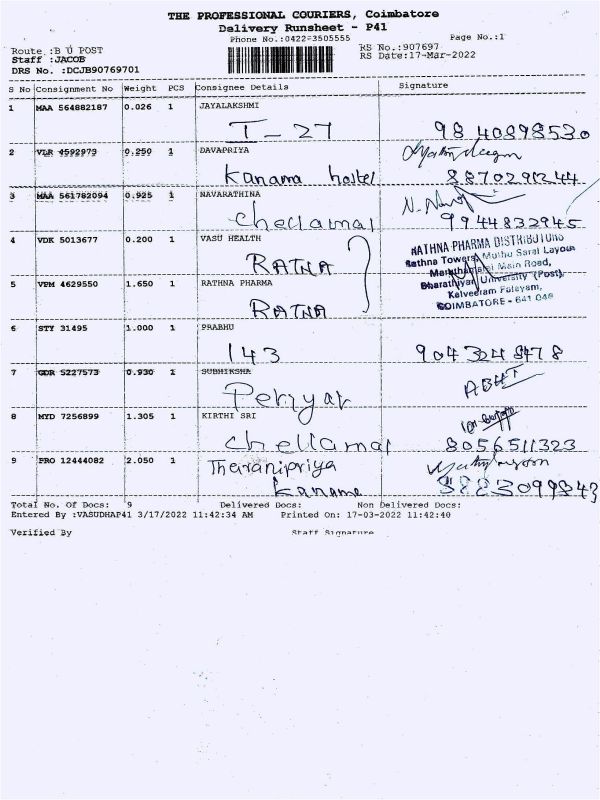 THE PROFESSIONAL COURIERS, Coimbatore
Delivery Runsheet - P41
Phone No.:0422-3505555 Page No.:1
Route :B U POST RS No.:907697
Staff :JACOB RS Date:17-Mar-2022
DRS No. :DCJB90769701
S No Consignment No Weight PCS Consignee Details Signature
1 MAA 564882187 0.026 1 JAYALAKSHMI
T - 27 9840898530
2 VLR 4592973 0.250 1 DAVAPRIYA
Kanama hostel 8870291244
3 MAA 561782094 0.925 1 NAVARATHINA
Chellamal 9944832945
4 VDK 5013677 0.200 1 VASU HEALTH
RATNA
RATHNA PHARMA DISTRIBUTORS
Rathna Towers, Muthu Sarai Layout
Maruthamalai Main Road,
Bharathiyar University (Post),
Kalveeram Palayam,
COIMBATORE - 641 046
5 VPM 4629550 1.650 1 RATHNA PHARMA
RATNA
6 STY 31495 1.000 1 PRABHU
143 9043248478
7 GDR 5227573 0.930 1 SUBHIKSHA
Periyar
8 MYD 7256899 1.305 1 KIRTHI SRI
Chellamal 8056511323
9 PRO 12444082 2.050 1 Tharanipriya
Kanama
Total No. Of Docs: 9 Delivered Docs: Non Delivered Docs:
Entered By :VASUDHAP41 3/17/2022 11:42:34 AM Printed On: 17-03-2022 11:42:40
Verified By Staff Signature